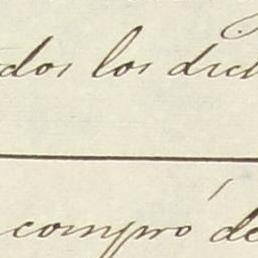 dos los dich
compró de